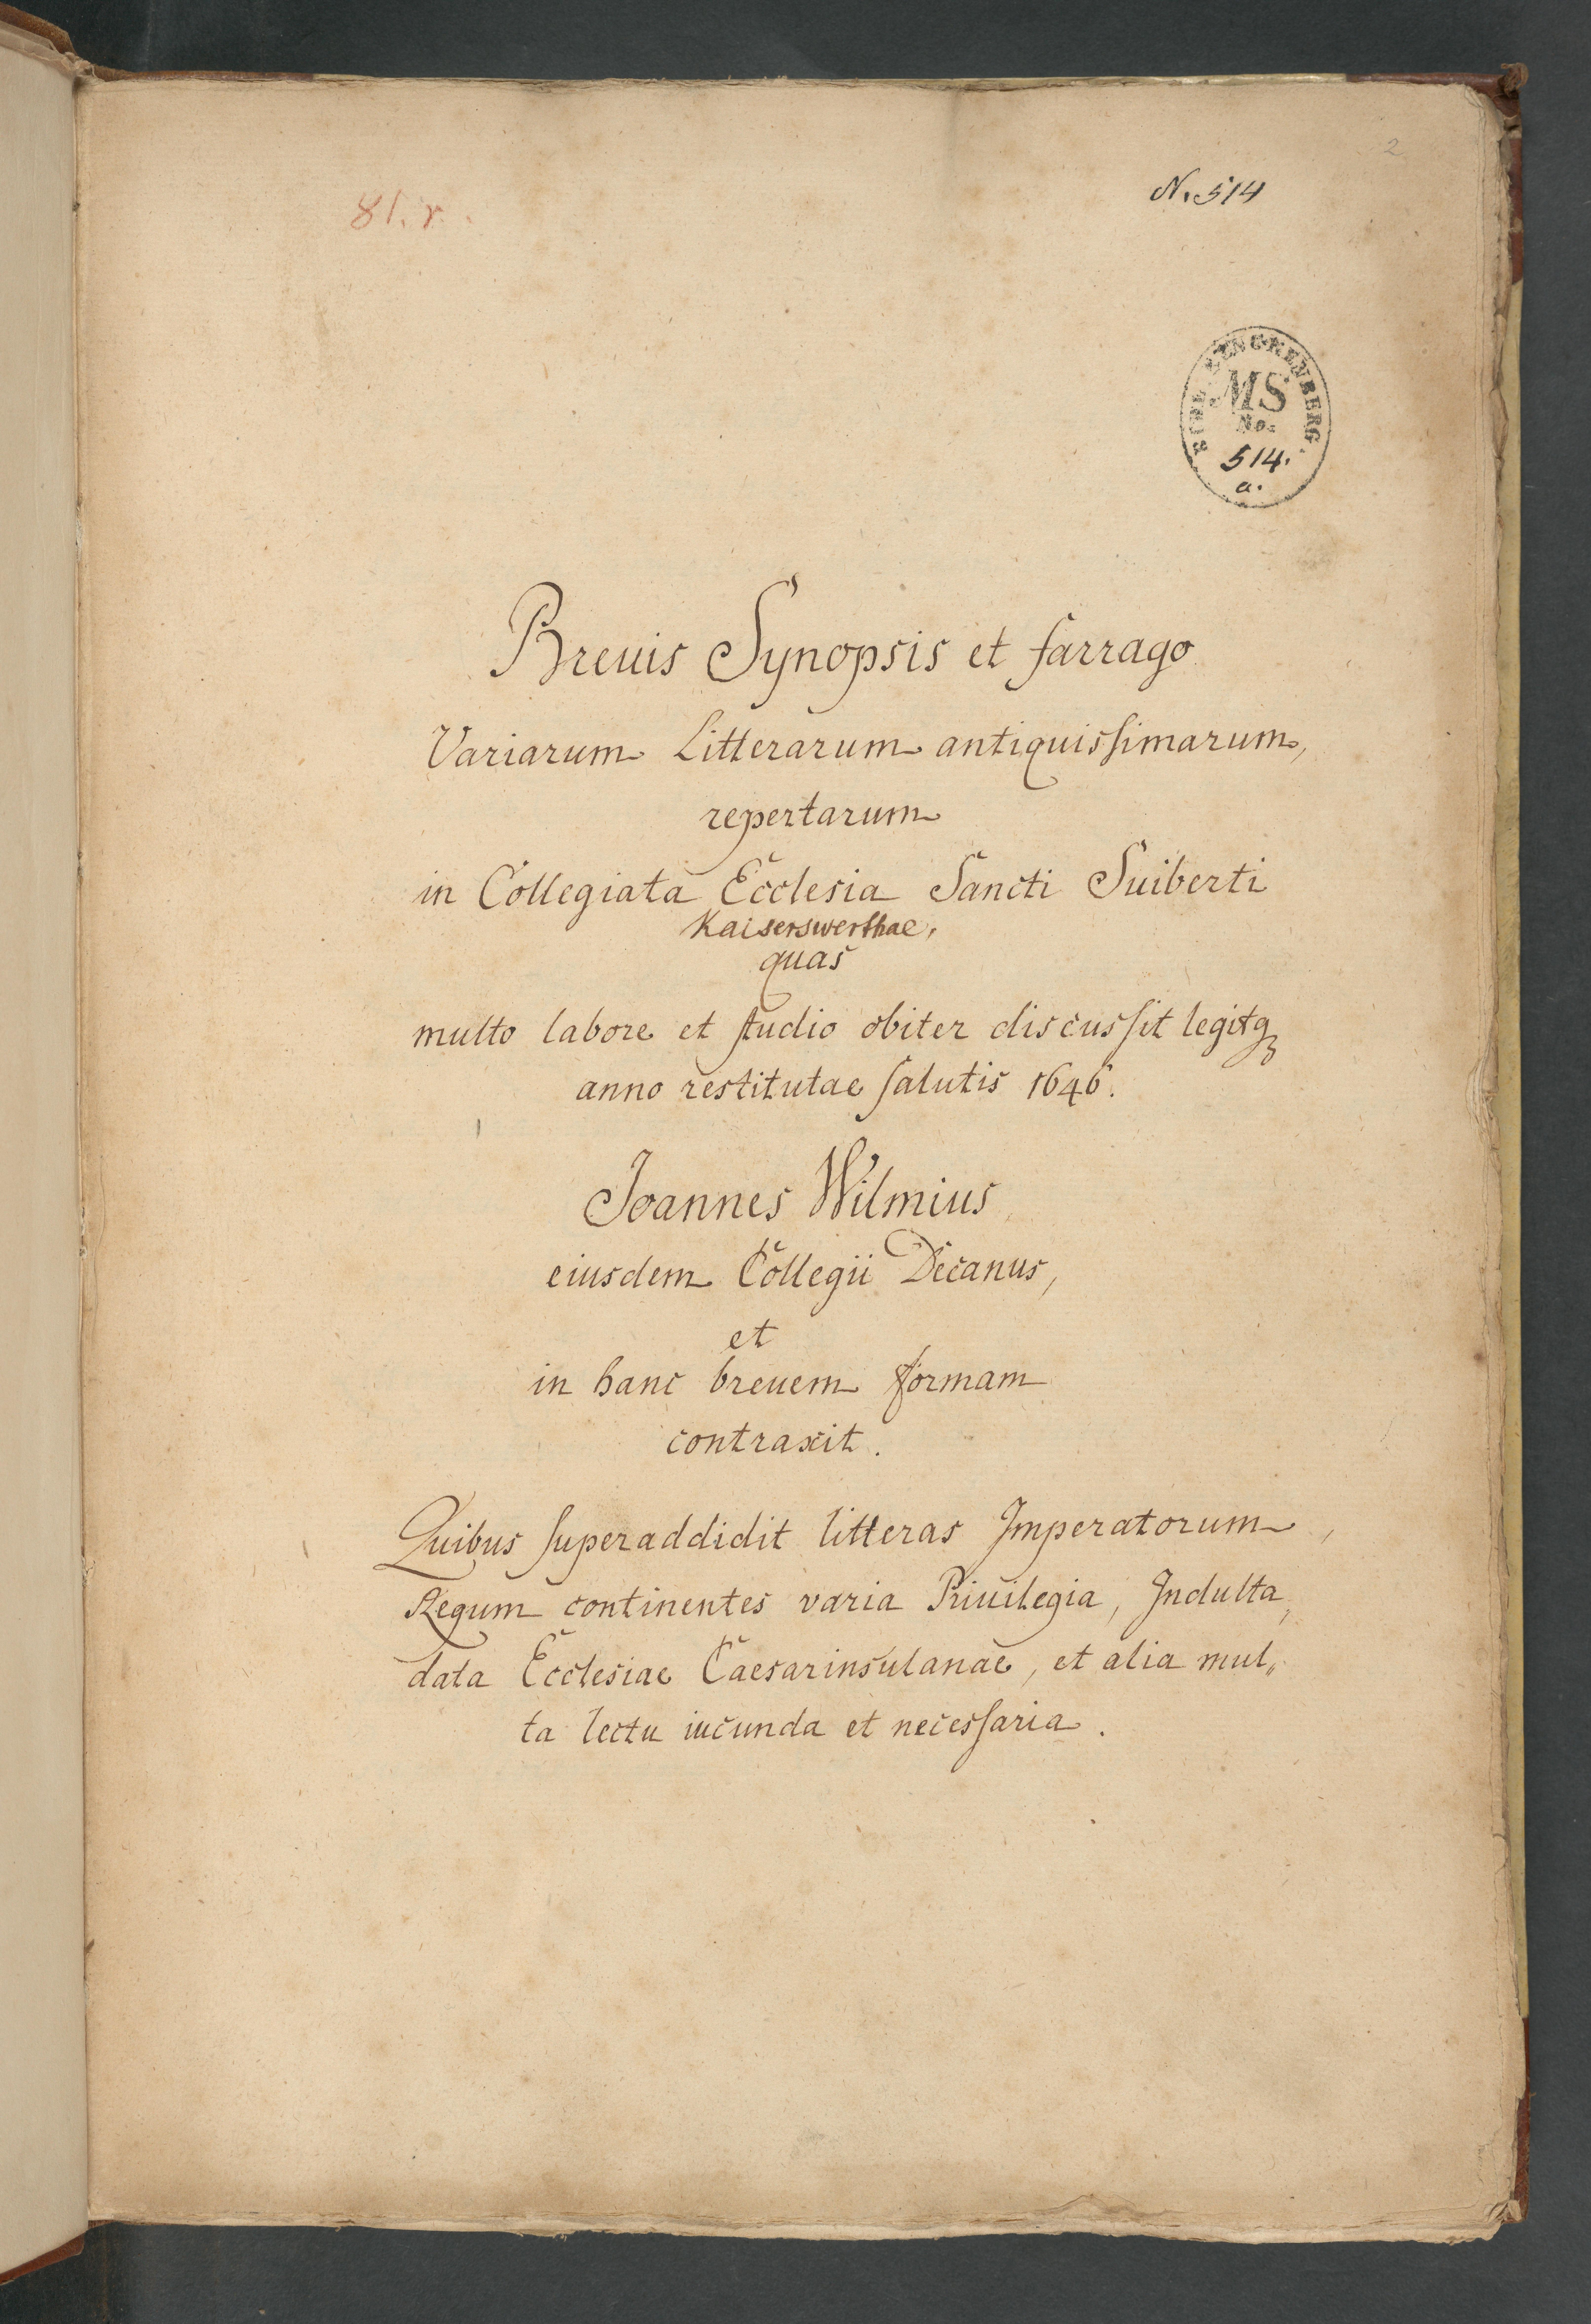 2
81. r.
N. 514
BIBL. RENCKENBERG.
MS
No.
514.
a.
Breuis Synopsis et farrago
Variarum Litterarum antiquissimarum,
repertarum
in Collegiata Ecclesia Sancti Suiberti
Kaiserswerthae,
quas
multo labore et studio obiter discussit legitqꝫ
anno restitutae salutis 1646.
Joannes Wilmius
eiusdem Collegii Decanus,
et
in hanc breuem formam
contraxit.
Quibus superaddidit litteras Imperatorum,
Regum continentes varia Priuilegia, Indulta,
data Ecclesiae Caesarinsulanae, et alia mul„
ta lectu iucunda et necessaria.